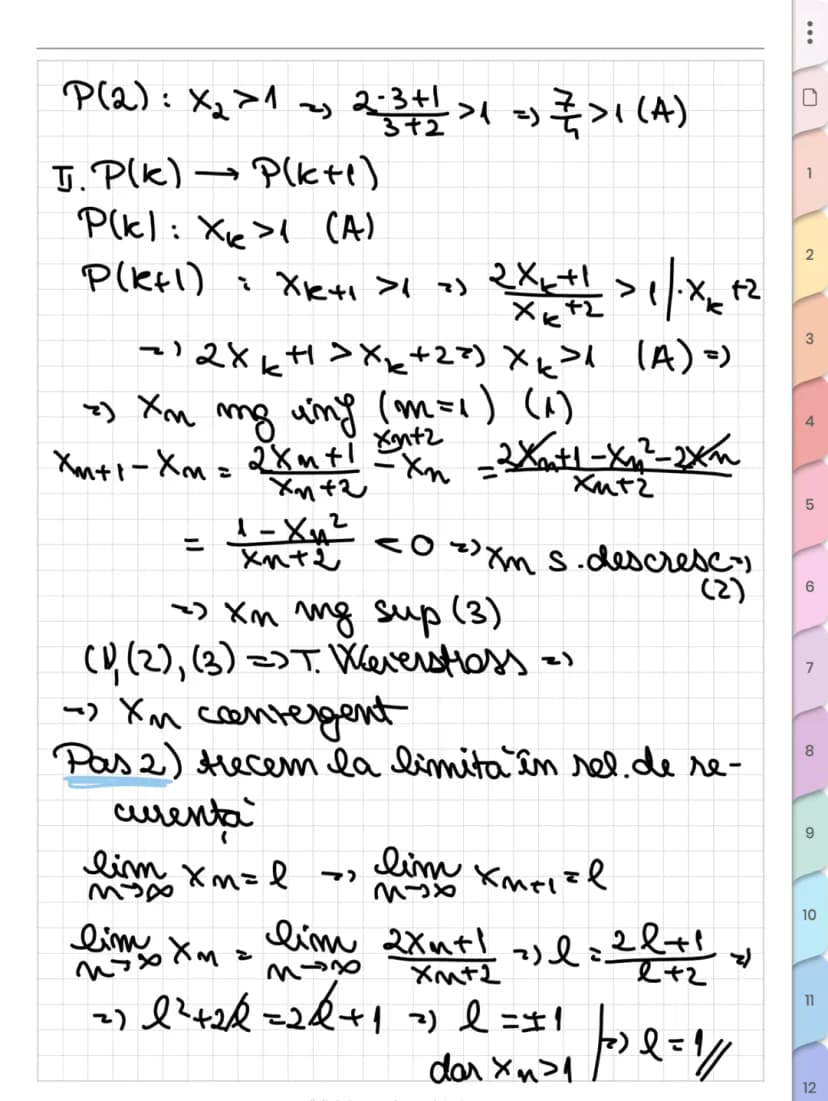 P(2): x₂>1 => (2·3+1)/(3+2) >1 => 7/5 >1 (A)
II. P(k) → P(k+1)
P(k): x_k>1 (A)
P(k+1) : x_{k+1} >1 => (2x_k+1)/(x_k+2) >1 |·x_k+2
=> 2x_k+1 >x_k+2 => x_k>1 (A) =>
=> x_n mg inf (m=1) (1)
x_{n+1} - x_n = (2x_n+1)/(x_n+2) - ^{x_n+2} x_n = (2x_n+1-x_n²-2x_n)/(x_n+2)
= (1-x_n²)/(x_n+2) <0 => x_n s.descresc =>
(2)
=> x_n mg sup (3)
(1),(2),(3) => T. Weierstrass =>
=> x_n convergent
Pas 2) trecem la limită în rel. de re-
curență
lim n→∞ x_n = l => lim n→∞ x_{n+1} = l
lim n→∞ x_n = lim n→∞ (2x_n+1)/(x_n+2) => l = (2l+1)/(l+2) =>
=> l²+2l = 2l+1 => l = ±1 | => l = 1//
dar x_n>1
1
2
3
4
5
6
7
8
9
10
11
12